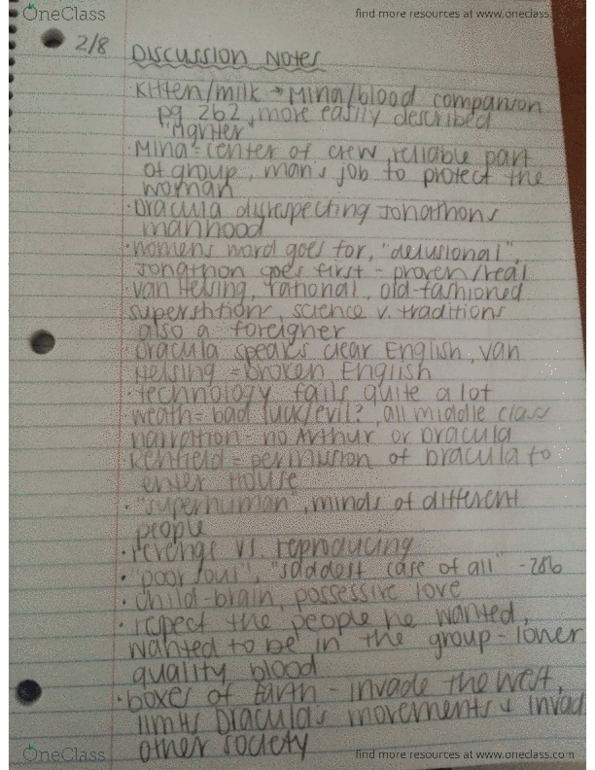 OneClass
find more resources at www.oneclass.
2/8
Discussion Notes
Kitten/milk → Mina/blood companion
pg 262, more easily described
"
Mina = center of crew, reliable part
of group, man's job to protect the
woman
· Dracula disrespecting Jonathons
manhood
· womens word goes for, "delusional",
Jonathon goes first - proven/real
· van Helsing, rational, old-fashioned
superstition, science v. traditions
also a foreigner
· Dracula speaks clear English, van
Helsing = broken English
· technology fails quite a lot
· weath = bad luck/evil? all middle class
narration - no Arthur or Dracula
Renfield = permission of Dracula to
enter House
· "superhuman", minds of different
people
· revenge vs. reproducing
· "poor soul", "saddest case of all" - 286
· child-brain, possessive love
· the people he wanted,
wanted to be in the group - lower
quality blood
· boxes of Earth - invade the west,
limits Dracula's movements & invad
other society
OneClass
find more resources at www.oneclass.com